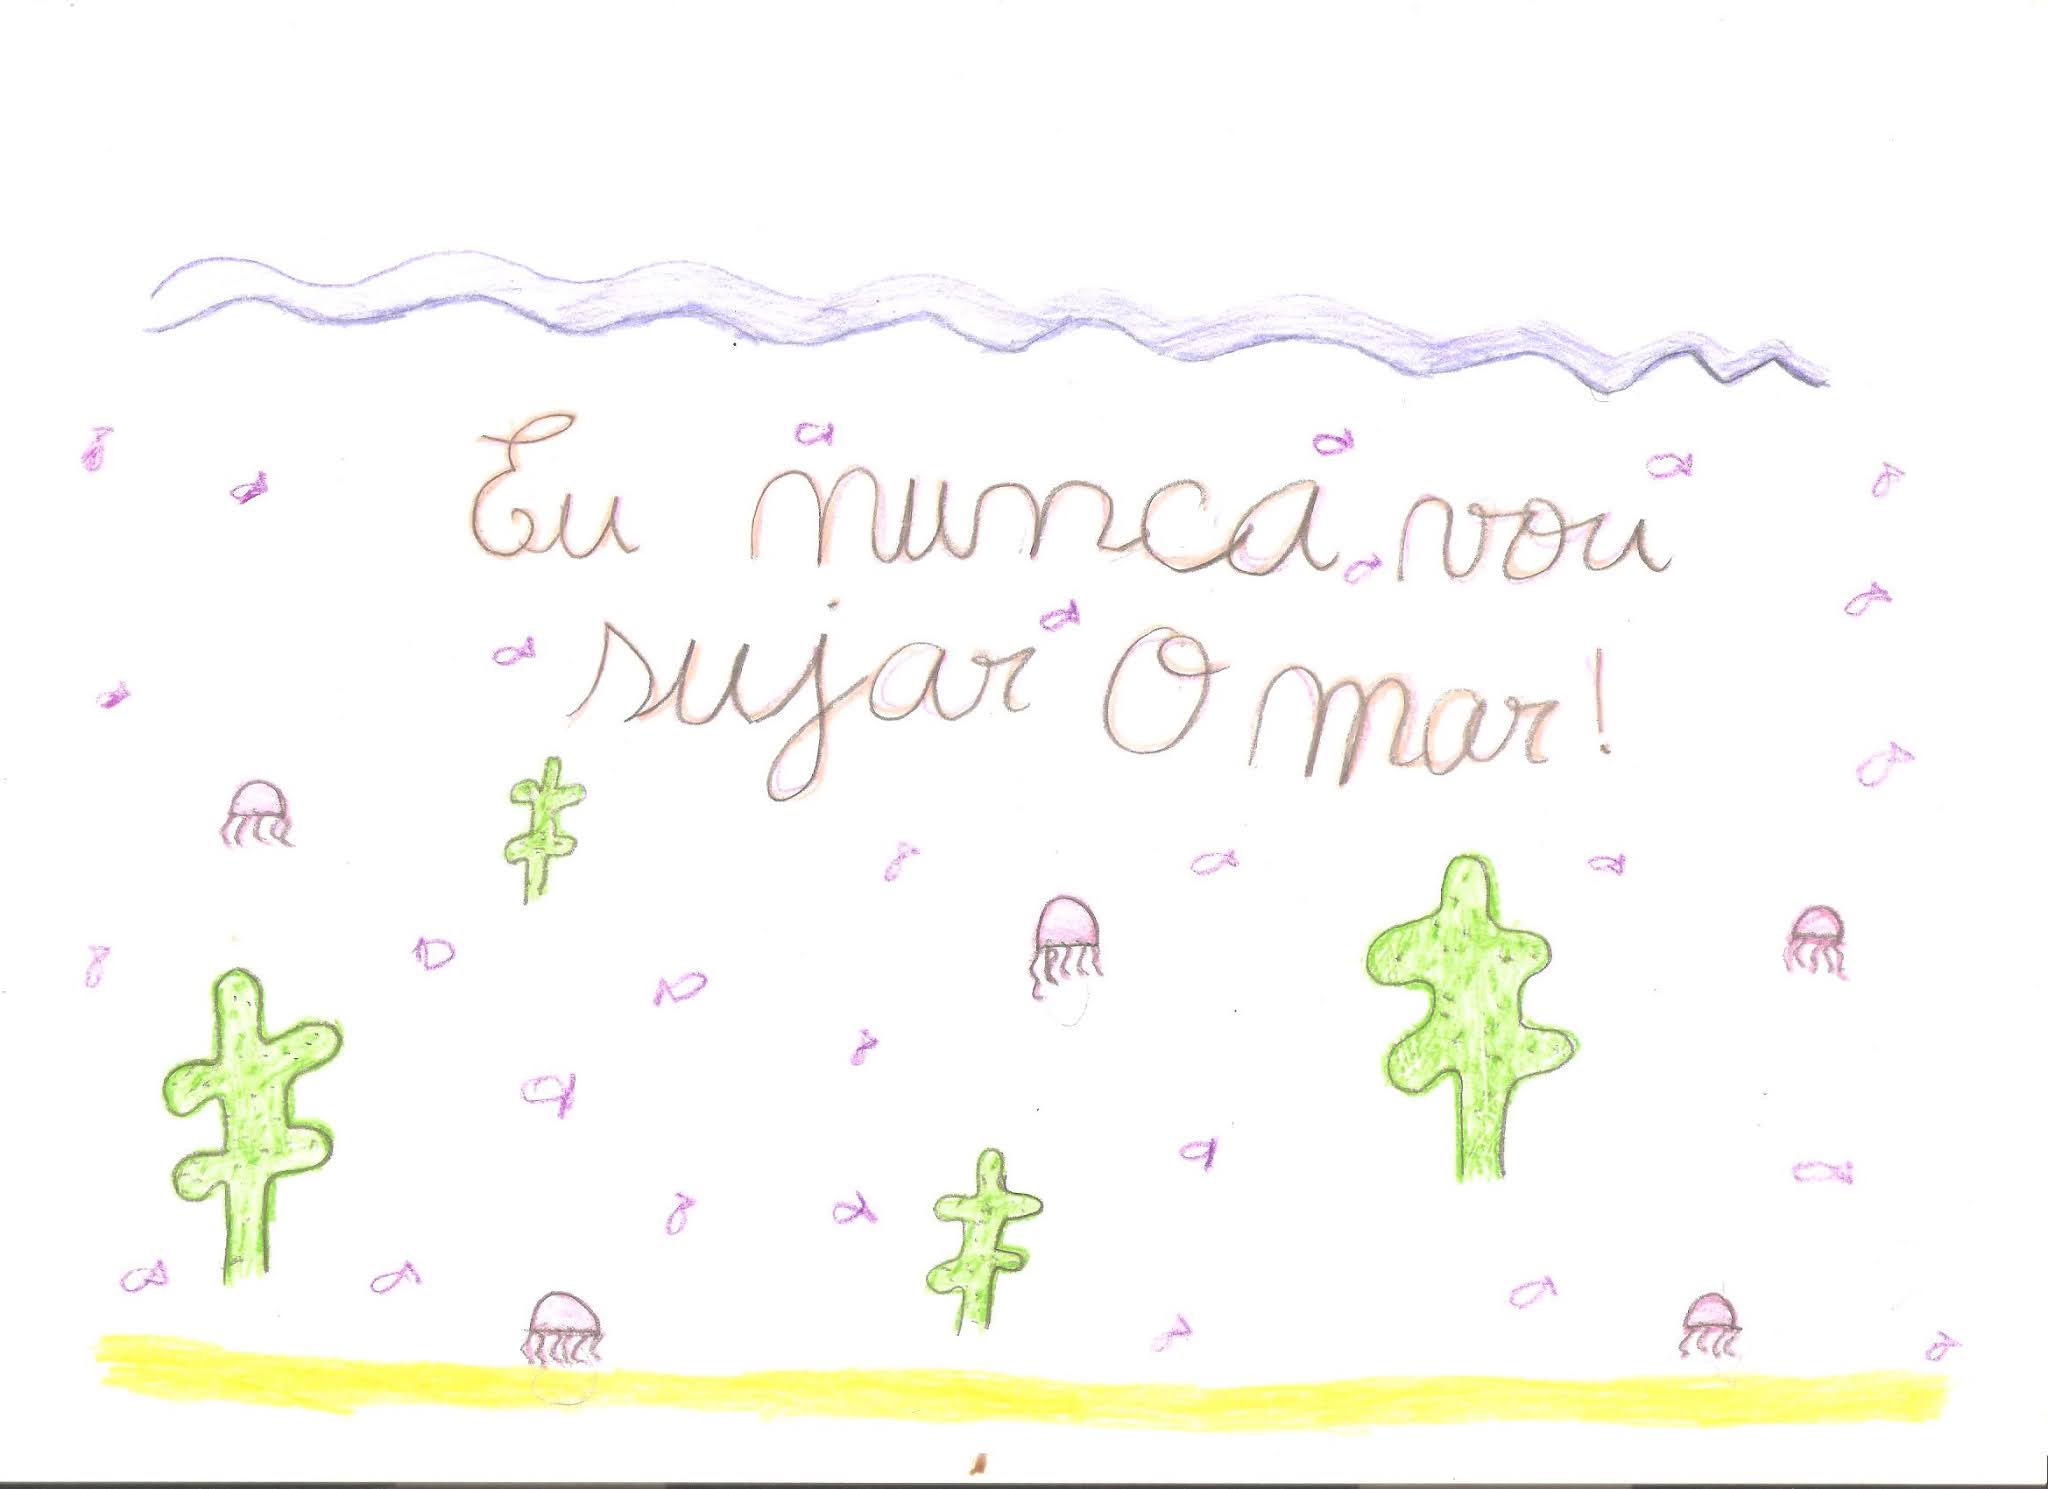 Eu nunca vou
sujar O mar!